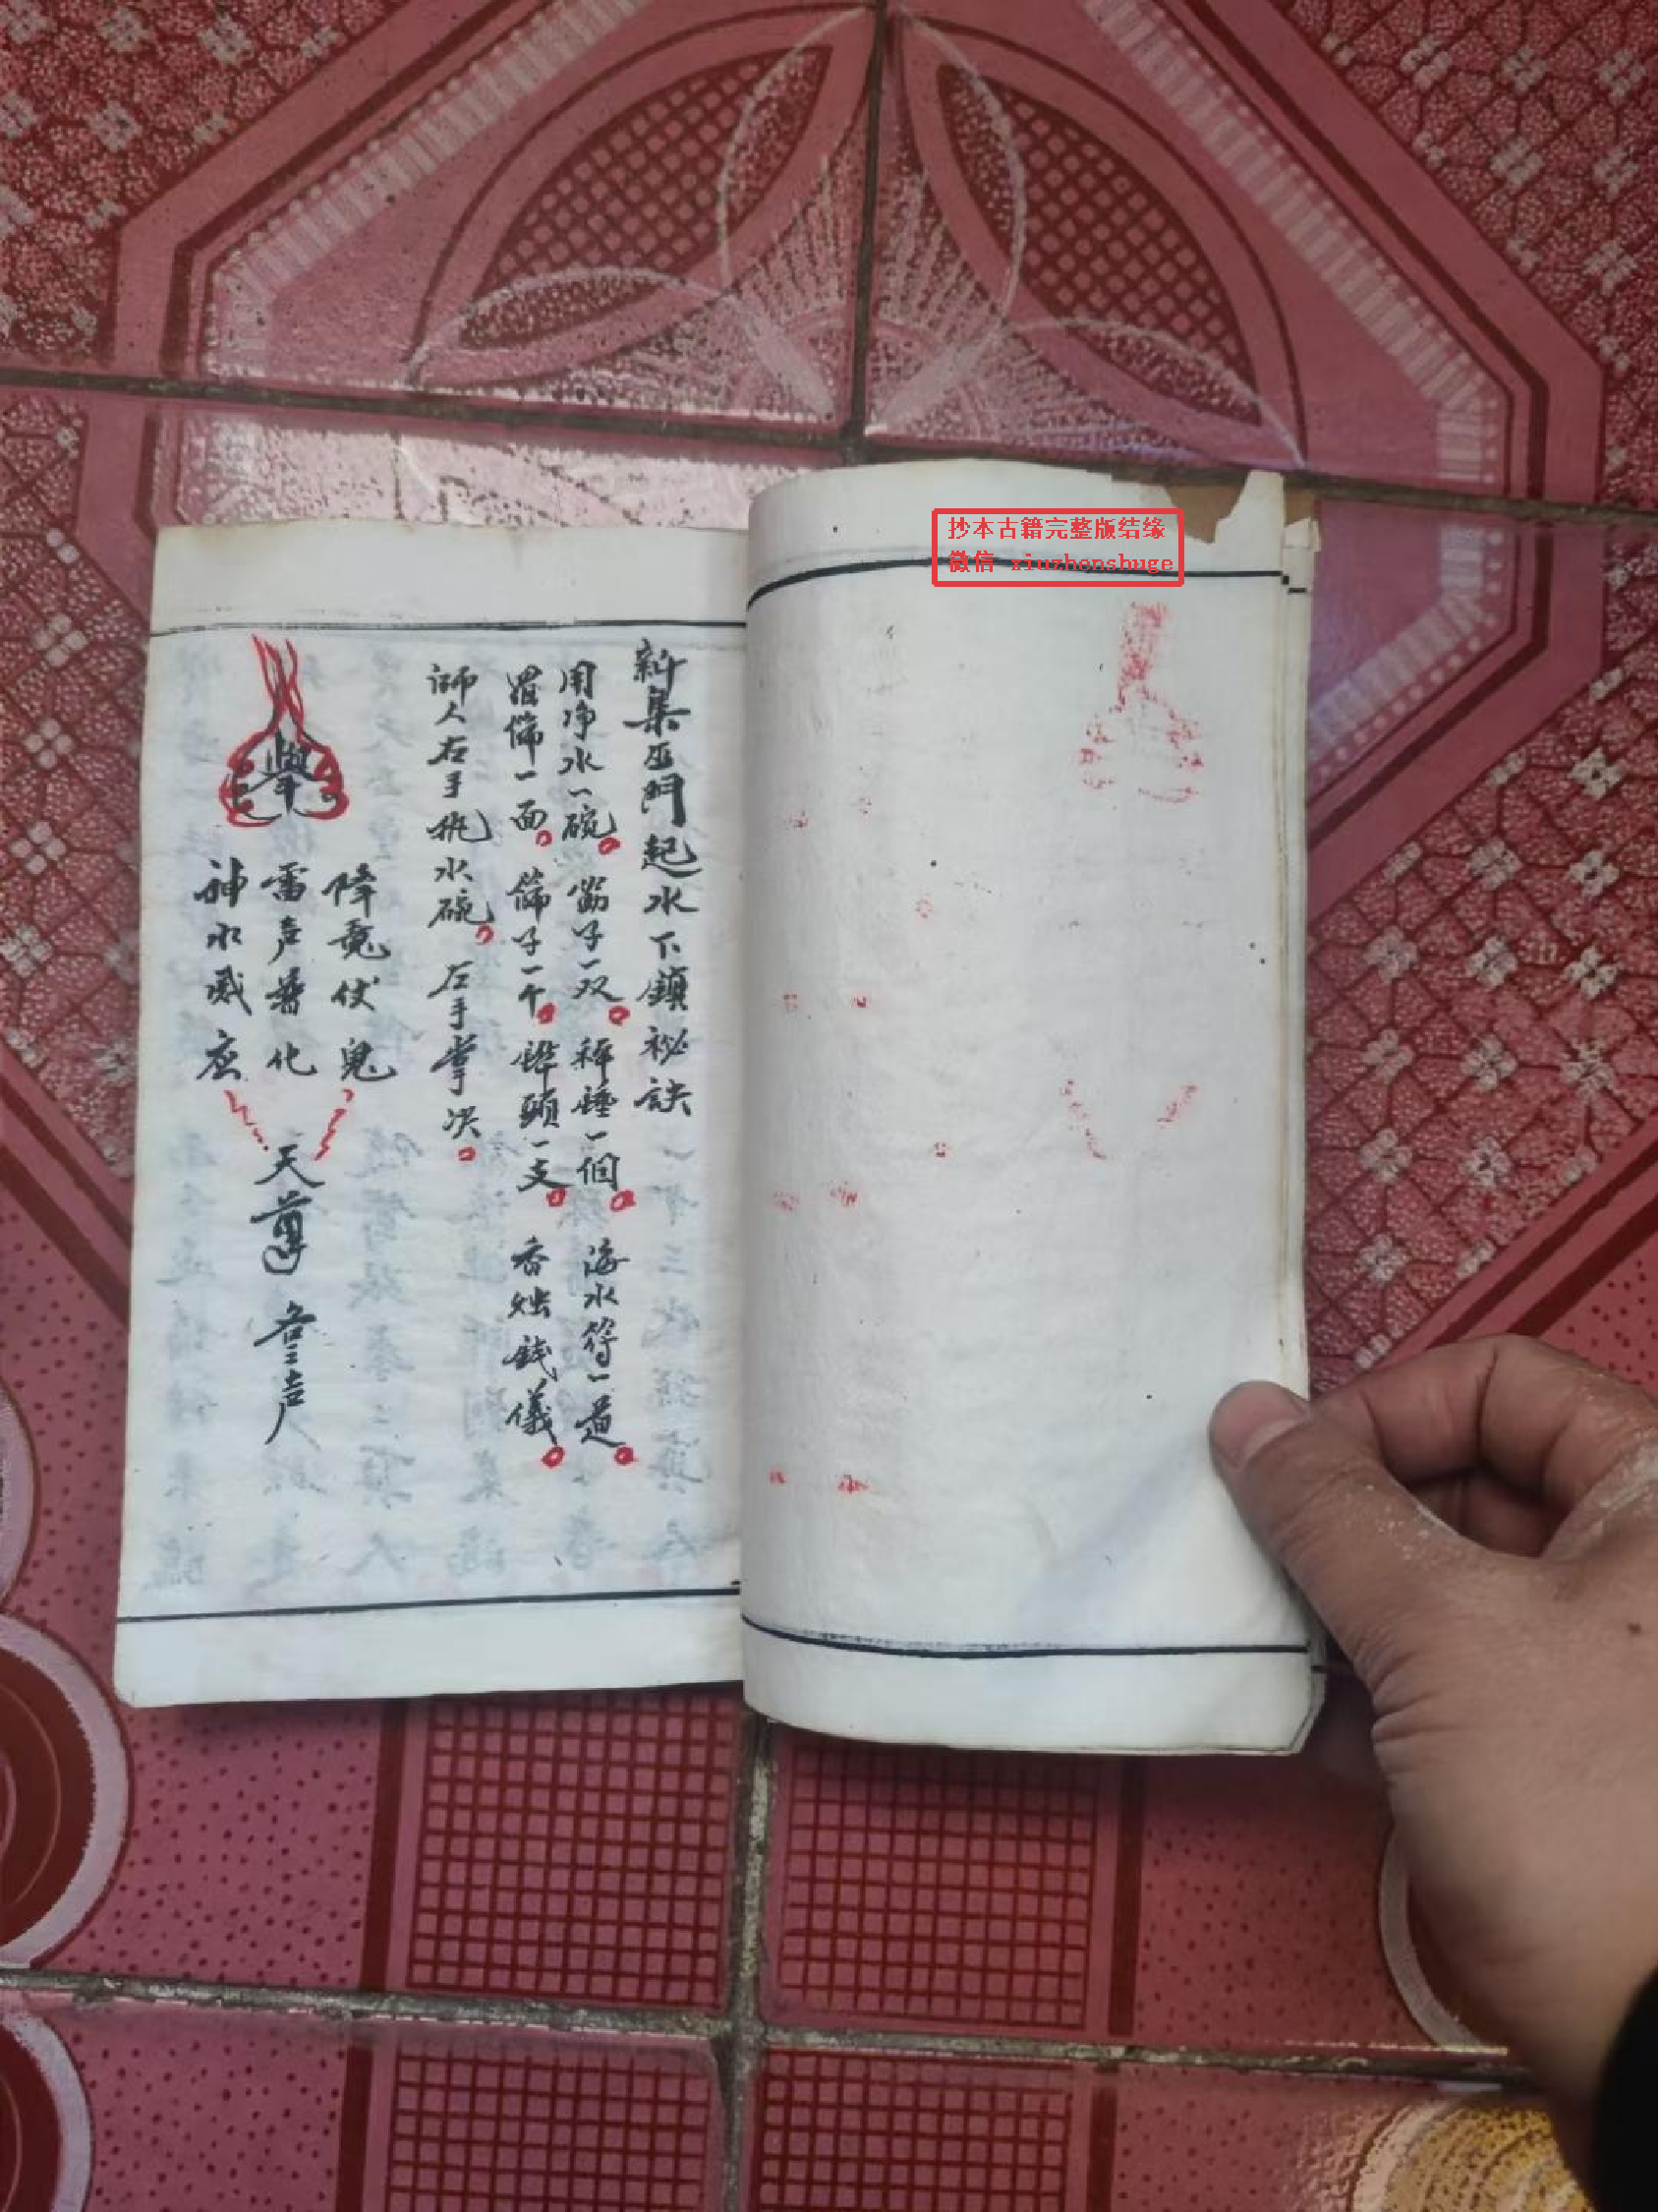 抄本古籍完整版结缘
微信 xiuzhenshuge
新集巫門起水下鎮祕訣
用净水一碗 筯子一双 秤錘一個 海水符一道
罗篩一面 篩子一个 鏵頭一支 香烛錢儀
师人右手执水碗 左手掌决
舉
降鬼伏鬼
雷声普化
神水威灵
天尊 叁声